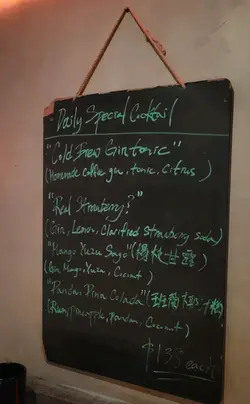 Daily Special Cocktail
"Cold Brew Gin tonic"
(Homemade coffee gin, tonic, Citrus)
"Real Strawberry?"
(Gin, Lemon, Clarified strawberry soda)
"Mango Yuzu Sago" (楊枝甘露)
(Gin, Mango, Yuzu, Coconut)
"Pandan Pina Colada" (班蘭椰汁糕)
(Rum, pineapple, Pandan, Coconut)
$138 each